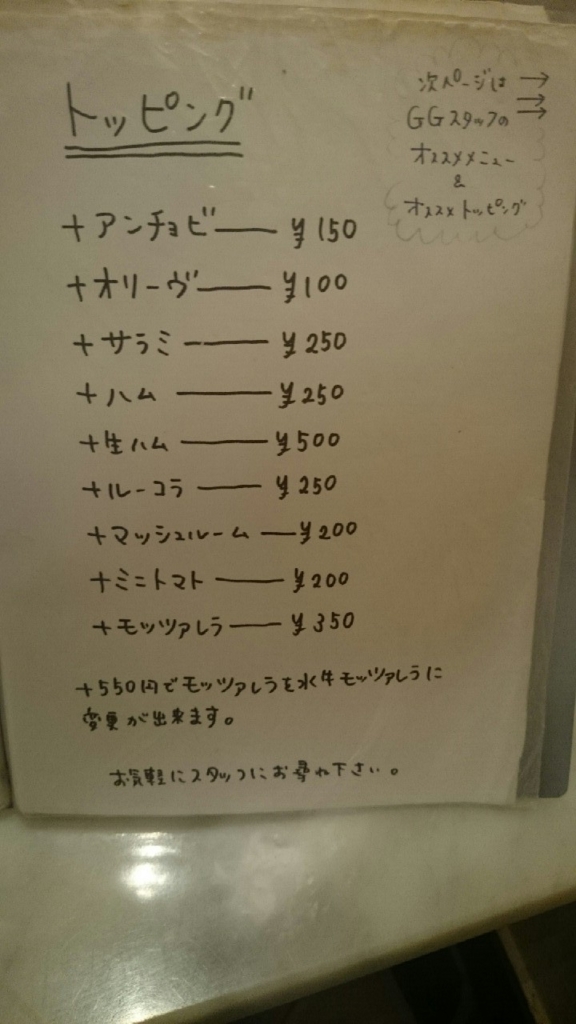 トッピング
次ページは →
GGスタッフの →
→
オススメメニュー
&
オススメトッピング
+アンチョビ — ¥150
+オリーヴ — ¥100
+サラミ — ¥250
+ハム — ¥250
+生ハム — ¥500
+ルーコラ — ¥250
+マッシュルーム — ¥200
+ミニトマト — ¥200
+モッツァレラ — ¥350
+550円でモッツァレラを水牛モッツァレラに
変更が出来ます。
お気軽にスタッフにお尋ね下さい。